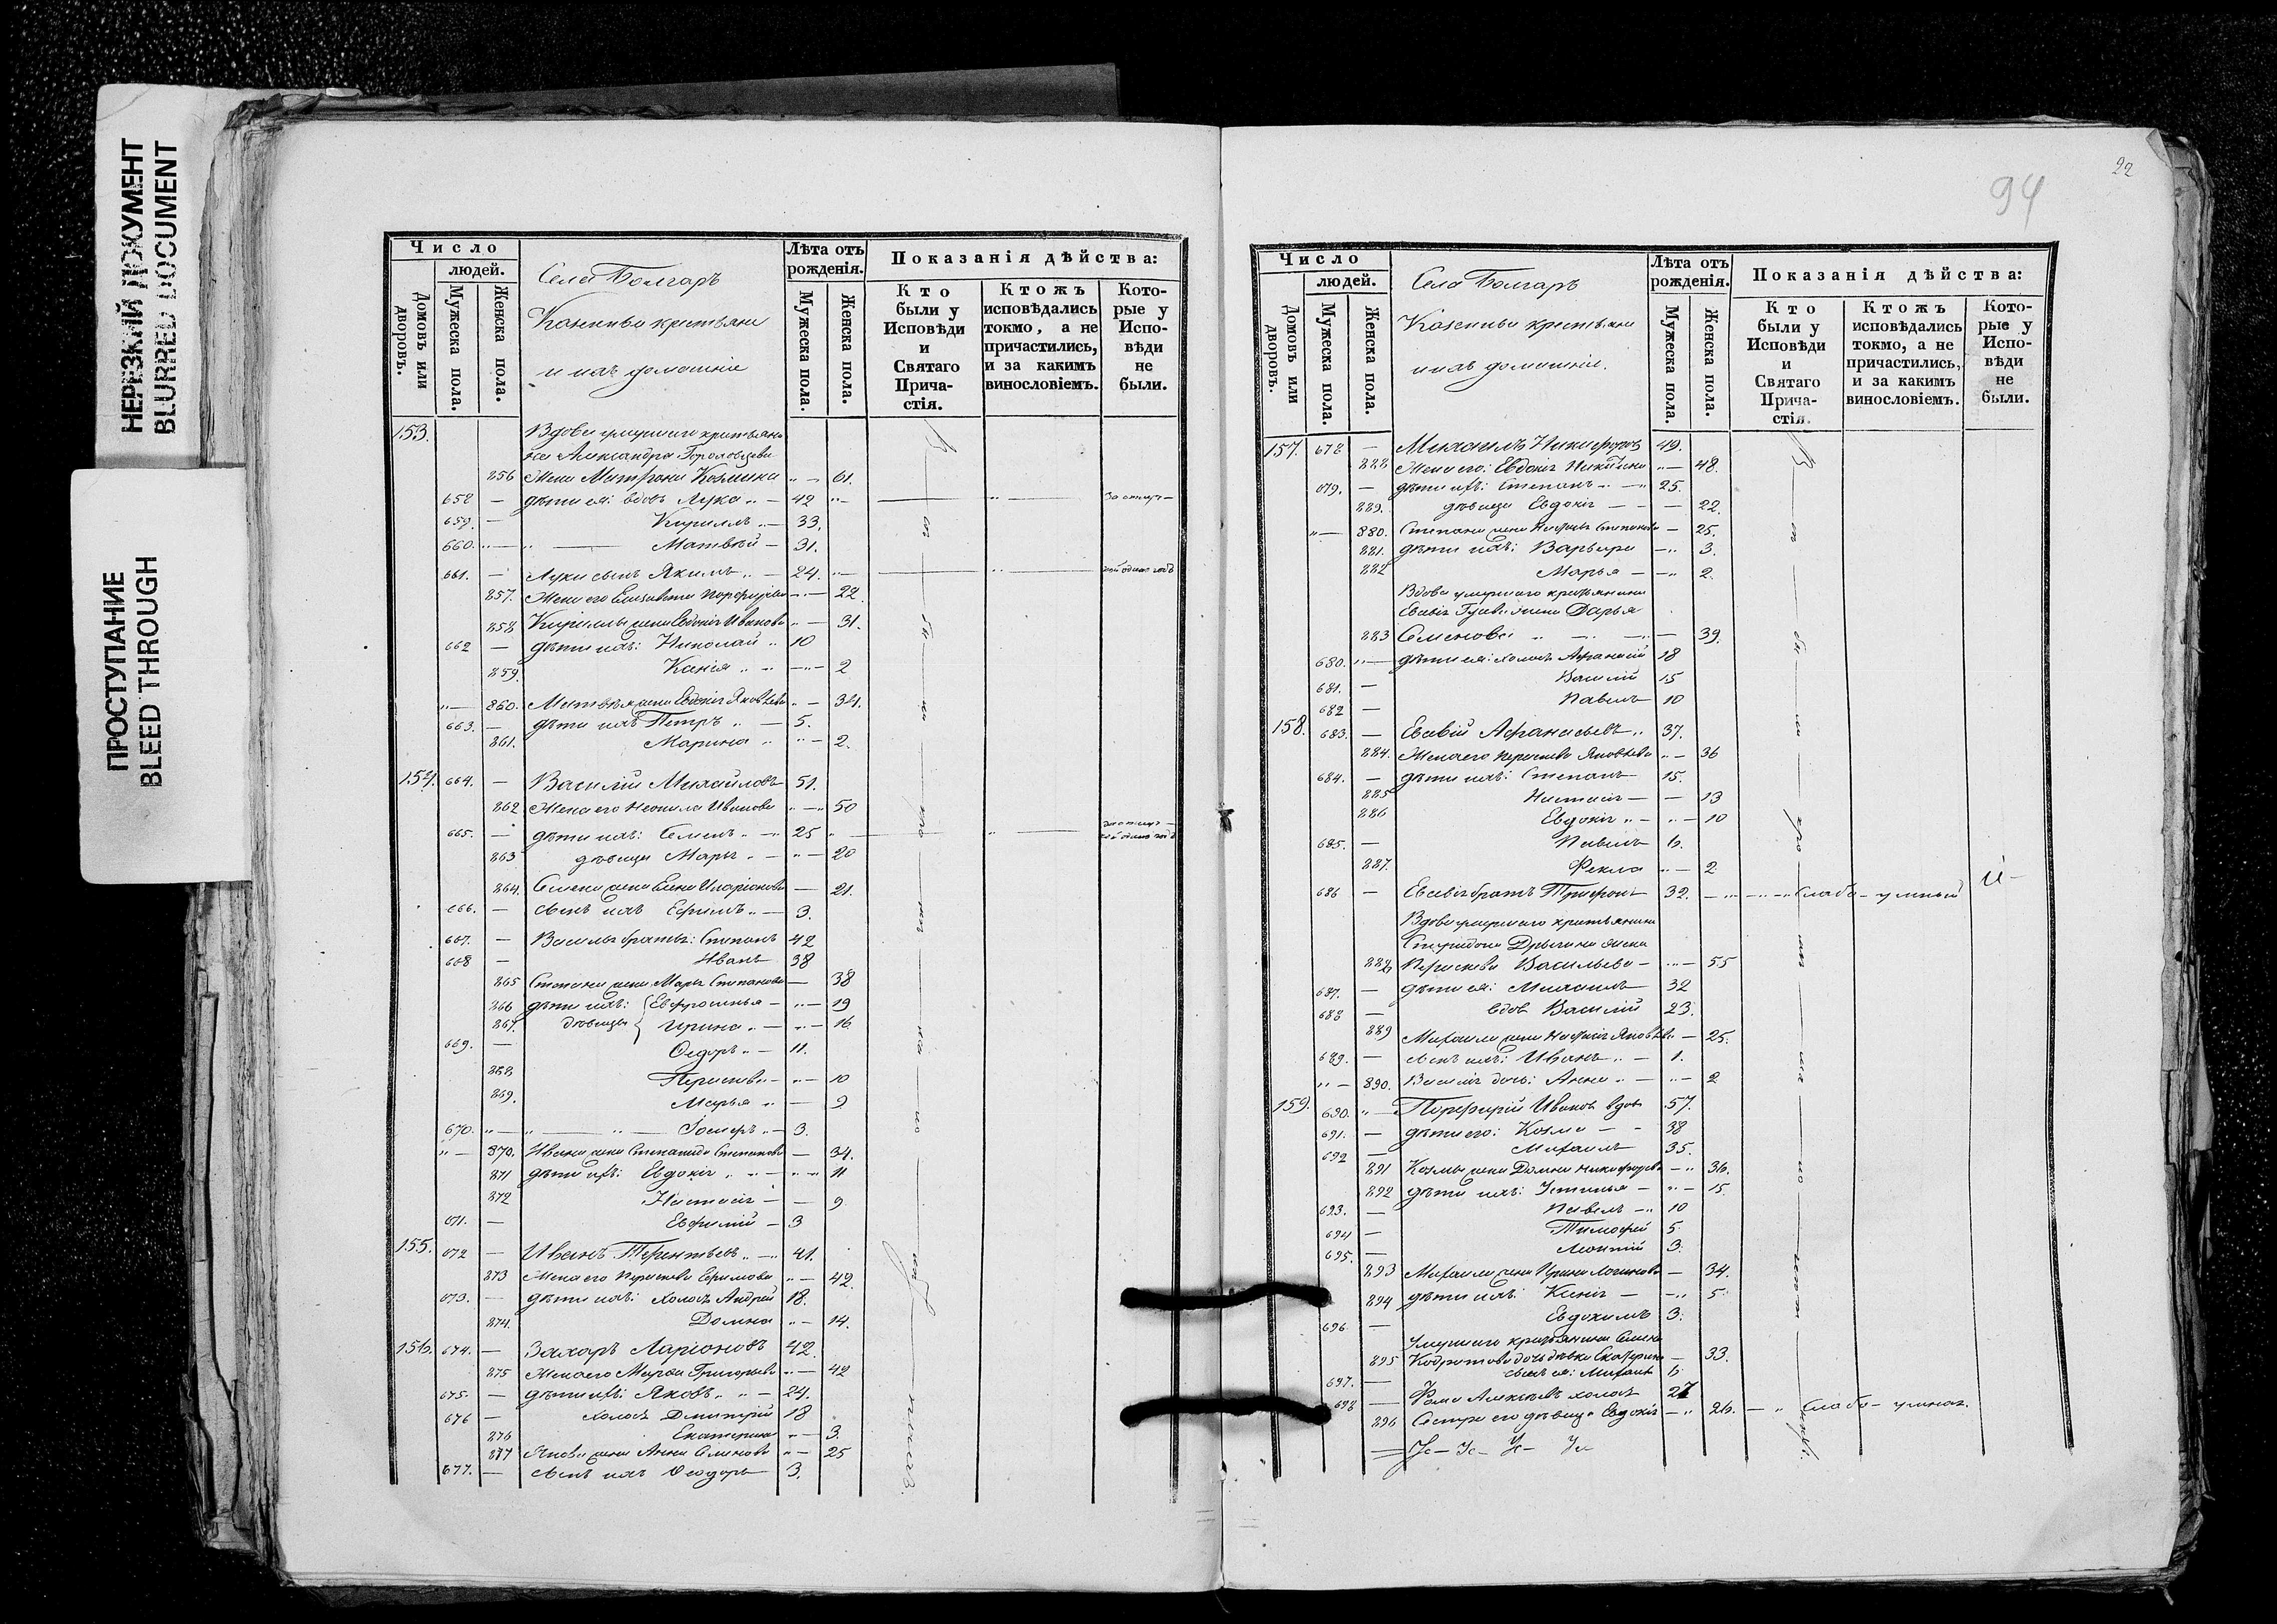 НЕРЕЗКИЙ ДОКУМЕНТ
BLURRED DOCUMENT
ПРОСТУПАНИЕ
BLEED THROUGH
Число
людей.
Домовъ или дворовъ.
Мужеска пола.
Женска пола.
Села Болгаръ
Казенные крестьяне
и ихъ домашніе
Лѣта отъ рожденія.
Мужеска пола.
Женска пола.
Показанія дѣйства:
Кто были у Исповѣди и Святаго Причастія.
Ктожъ исповѣдались токмо, а не причастились, и за какимъ винословіемъ.
Которые у Исповѣди не были.
153. Вдова умершаго крестьяни
на Александра
856 жена Матрона Козмина 61.
658 — дѣти ея: вдовъ Лука 42
659. — Кириллъ 33.
660. Матвѣй — 31.
661. — Луки сынъ Якимъ 24.
857. Жена его Елизавета Порфирьева 22
858 Кирилы жена Евдокія Иванова 31.
662 — дѣти ихъ: Николай 10
859. Ксенія 2
860. Матвѣя жена Евдокія Яковлева 34.
663. — дѣти ихъ Петръ 5.
861. Марина 2.
154. 664. — Василій Михайловъ 51.
862 Жена его Неонила Иванова 50
665. — дѣти ихъ: Семенъ 25
863 дѣвица Марья 20
864. Семена жена Елена Иларіонова 21.
666. — сынъ ихъ Ефимъ 3.
667. — Василья братья: Степанъ 42
668 — Иванъ 38
865 Степана жена Марья Степанова 38
866 дѣти ихъ: Евфросинья 19
867. дѣвицы Ирина 16
669. — Ѳедоръ 11.
868 Парасковья 10
869. Марья 9
670. Іосифъ 3.
870. Ивана жена Степанида Степанова 34.
871 дѣти ихъ: Евдокія 11
872 Настасія — 9
671. — Евфимій — 3
155. 672 — Иванъ Терентьевъ 41.
873 Жена его Парасковья Ефимова 42
673. — дѣти ихъ: холостъ Андрей 18.
874. Домна 14.
156. 674. — Захаръ Ларіоновъ 42
875 Жена его Марфа Григорьева 42
675. — дѣти ихъ: Яковъ 24.
676 — холостъ Дмитрій 18
876 Екатерина 3.
877 Якова жена Анна Семенова 25
677. — сынъ ихъ Ѳеодоръ 3.
22
94
Число
людей.
Домовъ или дворовъ.
Мужеска пола.
Женска пола.
Села Болгаръ
Казенные крестьяне
и ихъ домашніе.
Лѣта отъ рожденія.
Мужеска пола.
Женска пола.
Показанія дѣйства:
Кто были у Исповѣди и Святаго Причастія.
Ктожъ исповѣдались токмо, а не причастились, и за какимъ винословіемъ.
Которые у Исповѣди не были.
157. 678 — Михаилъ Никифоровъ 49.
Жена его: Евдокія Никитина 48.
679. — дѣти ихъ: Степанъ 25.
дѣвица Евдокія 22.
880. Степана жена Степанова 25.
881. дѣти ихъ: Варвара 3.
882 Марья 2.
Вдова умершаго крестьянина
Евсевія жена Дарья
883 Семенова 39.
680. дѣти ея: холостъ Афанасій 18
681. — Василій 15
682 — Павелъ 10
158. 683. — Евсевій Афанасьевъ 37.
884. Жена его Парасковья Яковлева 36
684. — дѣти ихъ: Степанъ 15.
885 Настасія — 13
886 Евдокія 10
685. — Павелъ 6.
887. Фекла 2
686 — Евсевія братъ Трифонъ 32. Слабо-умный
Вдова умершаго крестьянина
Спиридона жена
888 Парасковья Васильева 55
687. — дѣти ея: Михаилъ 32
688 — вдовъ Василій 23.
889 Михаила жена Яковлева 25.
689. — сынъ ихъ: Иванъ 1.
890. Василія дочь: Анна 2
159. 690. Порфирій Ивановъ вдовъ 57.
691. — дѣти его: Козма 38
692 — Михаилъ 35.
891 Козмы жена Домна Никифорова 36.
892 дѣти ихъ: Устинья 15.
693. — Павелъ 10
694 — Тимофей 5.
695. — Леонтій 3.
893 Михаила жена Ирина Логинова 34.
894 дѣти ихъ: Ксенія 5.
696. — Евдокимъ 3.
Умершаго крестьянина Семена
895 дочь дѣвка Екатерина 33.
697. — сынъ ея: Михаилъ 6
698 — Фома Алексѣевъ холостъ 27
896 Сестра его дѣвица Евдокія 26. Слабо-умная.